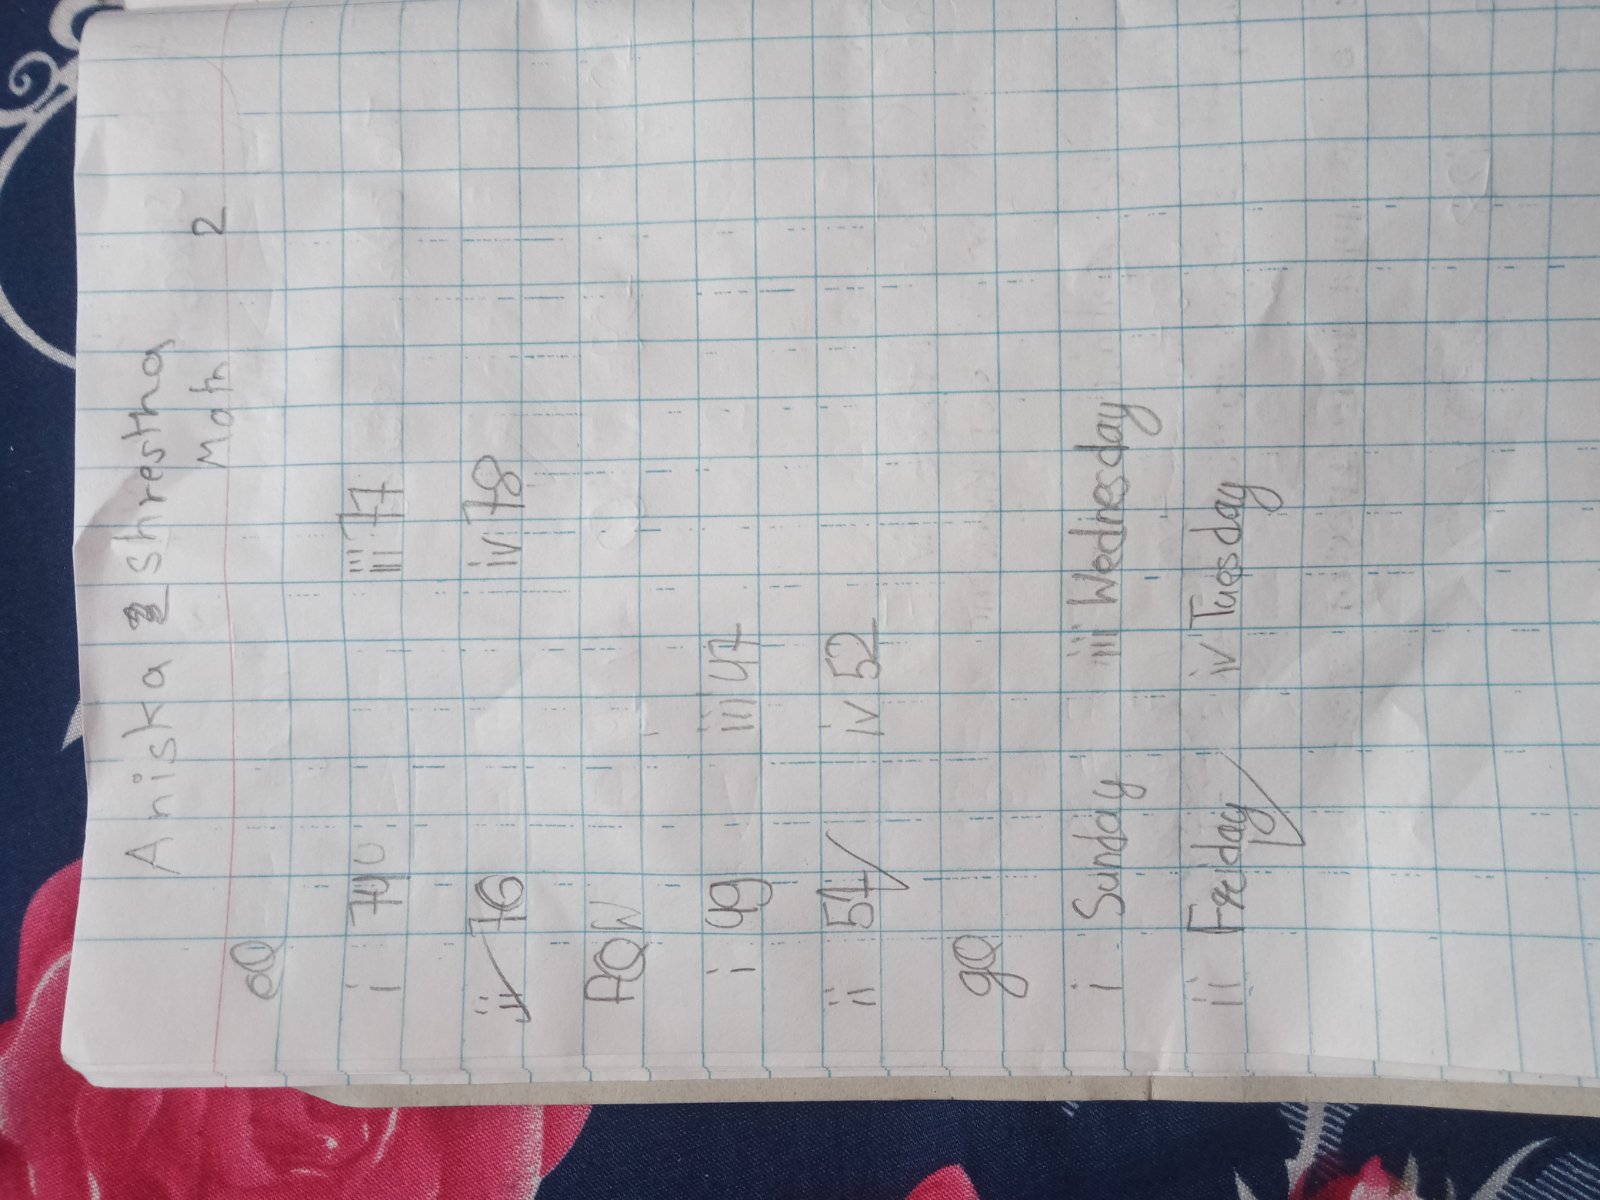 Aniska shrestha
Math 2
i 74 iii 77
ii 76 iv 78
AQW
i 49 iii 47
ii 51 iv 52
gQ
i Sunday iii Wednesday
ii Friday iv Tuesday